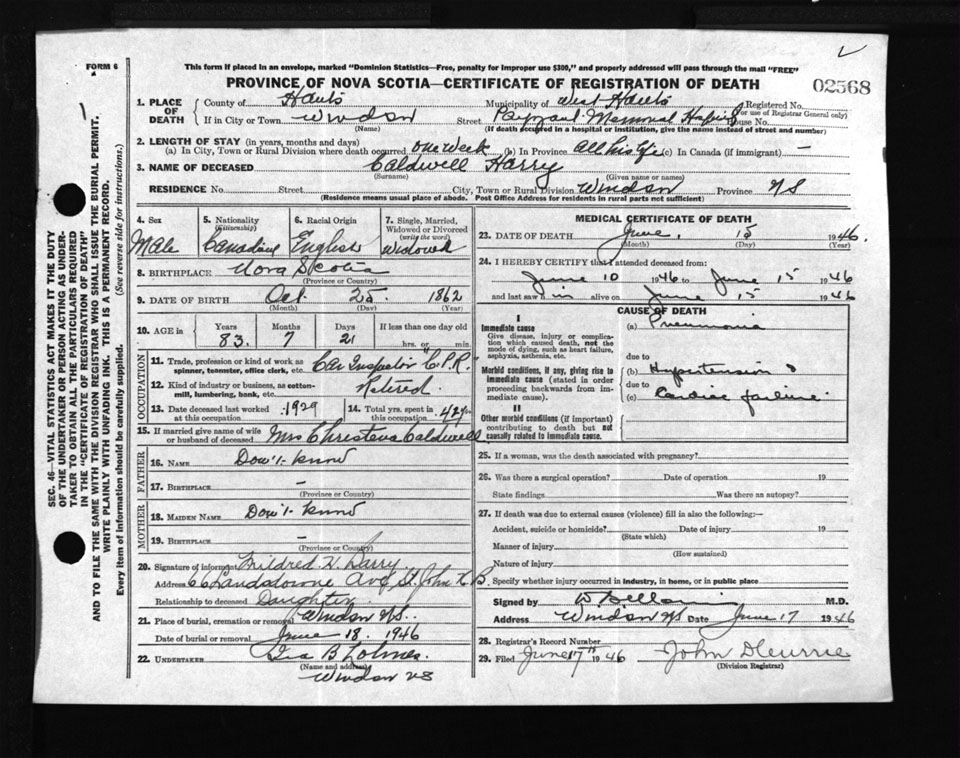 FORM 6
This form if placed in an envelope, marked "Dominion Statistics—Free, penalty for improper use $300," and properly addressed will pass through the mail "FREE"
PROVINCE OF NOVA SCOTIA—CERTIFICATE OF REGISTRATION OF DEATH
02568
SEC. 46—VITAL STATISTICS ACT MAKES IT THE DUTY
OF THE UNDERTAKER OR PERSON ACTING AS UNDER-
TAKER TO OBTAIN ALL THE PARTICULARS REQUIRED
IN THE "CERTIFICATE OF REGISTRATION OF DEATH"
AND TO FILE THE SAME WITH THE DIVISION REGISTRAR WHO SHALL ISSUE THE BURIAL PERMIT.
WRITE PLAINLY WITH UNFADING INK. THIS IS A PERMANENT RECORD.
Every item of information should be carefully supplied. (See reverse side for instructions.)
1. PLACE OF DEATH
County of Hants Municipality of West Hants Registered No.
If in City or Town Windsor Street Payzant Memorial Hospital House No. (For use of Registrar General only)
(Name) (If death occurred in a hospital or institution, give the name instead of street and number)
2. LENGTH OF STAY (in years, months and days)
(a) In City, Town or Rural Division where death occurred one week (b) In Province All his life (c) In Canada (if immigrant) —
3. NAME OF DECEASED Caldwell Harry
(Surname) (Given name or names)
RESIDENCE No. Street City, Town or Rural Division Windsor Province NS
(Residence means usual place of abode. Post Office Address for residents in rural parts not sufficient)
4. Sex Male
5. Nationality (Citizenship) Canadian
6. Racial Origin English
7. Single, Married, Widowed or Divorced (write the word) Widowed
8. BIRTHPLACE Nova Scotia
(Province or Country)
9. DATE OF BIRTH Oct. 25. 1862
(Month) (Day) (Year)
10. AGE in Years 83. Months 7 Days 21 If less than one day old hrs. or min.
OCCUPATION
11. Trade, profession or kind of work as spinner, teamster, office clerk, etc. Car Inspector "C.P.R."
12. Kind of industry or business, as cotton-mill, lumbering, bank, etc. Retired.
13. Date deceased last worked at this occupation 1929
14. Total yrs. spent in this occupation 42 yrs.
15. If married give name of wife or husband of deceased Mrs Christena Caldwell
FATHER
16. NAME Don't know
17. BIRTHPLACE —
(Province or Country)
MOTHER
18. MAIDEN NAME Don't know
19. BIRTHPLACE —
(Province or Country)
20. Signature of informant Mildred H. Darry
Address 66 Landsdowne Ave, St. John N.B.
Relationship to deceased Daughter
21. Place of burial, cremation or removal Windsor N.S.
Date of burial or removal June 18. 1946
22. UNDERTAKER Ira B Lohnes.
(Name and address)
Windsor NS
MEDICAL CERTIFICATE OF DEATH
23. DATE OF DEATH June. 15 1946.
(Month) (Day) (Year)
24. I HEREBY CERTIFY that I attended deceased from:
June 10 1946 to June 15 1946
and last saw him alive on June 15 1946
CAUSE OF DEATH
I
Immediate cause
Give disease, injury or complication which caused death, not the mode of dying, such as heart failure, asphyxia, asthenia, etc.
(a) Pneumonia
due to
Morbid conditions, if any, giving rise to immediate cause (stated in order proceeding backwards from immediate cause).
(b) Hypertension &
due to
(c) Cardiac failure.
II
Other morbid conditions (if important) contributing to death but not causally related to immediate cause.
25. If a woman, was the death associated with pregnancy?
26. Was there a surgical operation? Date of operation 19
State findings Was there an autopsy?
27. If death was due to external causes (violence) fill in also the following:—
Accident, suicide or homicide? Date of injury 19
(State which)
Manner of injury
(How sustained)
Nature of injury
Specify whether injury occurred in industry, in home, or in public place
Signed by M.D.
Address Windsor NS Date June 17 1946
28. Registrar's Record Number
29. Filed June 17th 1946 John
(Division Registrar)